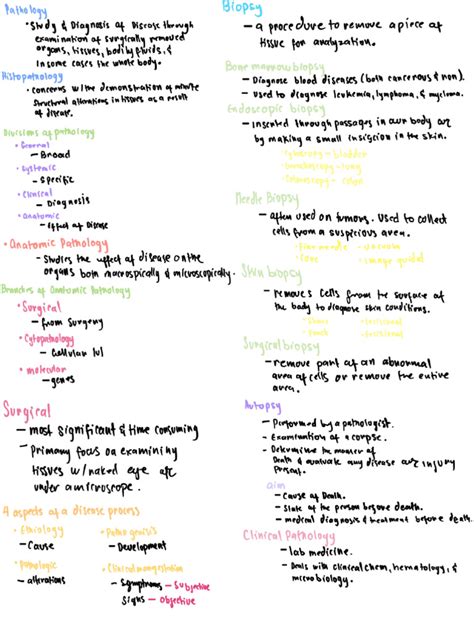 Pathology
• Study & Diagnosis of Disease through
examination of surgically removed
organs, tissues, bodily fluids, &
in some cases the whole body.
Histopathology
• concerns w/the demonstration of minute
structural alterations in tissues as a result
of disease.
Divisions of pathology
• General
— Broad
• Systemic
— Specific
• Clinical
— Diagnosis
• Anatomic
— Effect of Disease
• Anatomic Pathology
— Studies the effect of disease on the
organs both macrospically & microscopically.
Branches of Anatomic Pathology
• Surgical
— from Surgery
• Cytopathology
— Cellular lvl
• molecular
— genes
Surgical
— most significant & time consuming
— Primary focus on examining
tissues w/naked eye or
under a microscope.
4 aspects of a disease process
• Ethiology
— Cause
• Pathogenisis
— Development
• Pathologic
— alterations
• Clinical manifestation
— Symptoms — Subjective
Signs — objective
Biopsy
— a procedure to remove a piece of
tissue for analyzation.
Bone marrow biopsy
— Diagnose blood diseases (both cancerous & non).
— Used to diagnose leukemia, lymphoma, & myeloma.
Endoscopic biopsy
— Inserted through passages in our body or
by making a small insicion in the skin.
Cytoscopy - bladder
Bronchoscopy - lung
Colonoscopy - colon
Needle Biopsy
— often used on tumors. Used to collect
cells from a suspicious area.
• fine needle • vacuum
• Core • image guided
Skin biopsy
— removes cells from the surface of
the body to diagnose skin conditions.
• Shave • incisional
• Punch • excisional
Surgical biopsy
— remove part of an abnormal
area of cells or remove the entire
area.
Autopsy
— Performed by a pathologist.
— Examination of a corpse.
— Determine the manner of
Death & evaluate any disease or injury
present.
aim
— Cause of Death.
— State of the person before death.
— medical diagnosis & treatment before death.
Clinical Pathology
— lab medicine.
— Deals with clinical chem, hematology, &
microbiology.